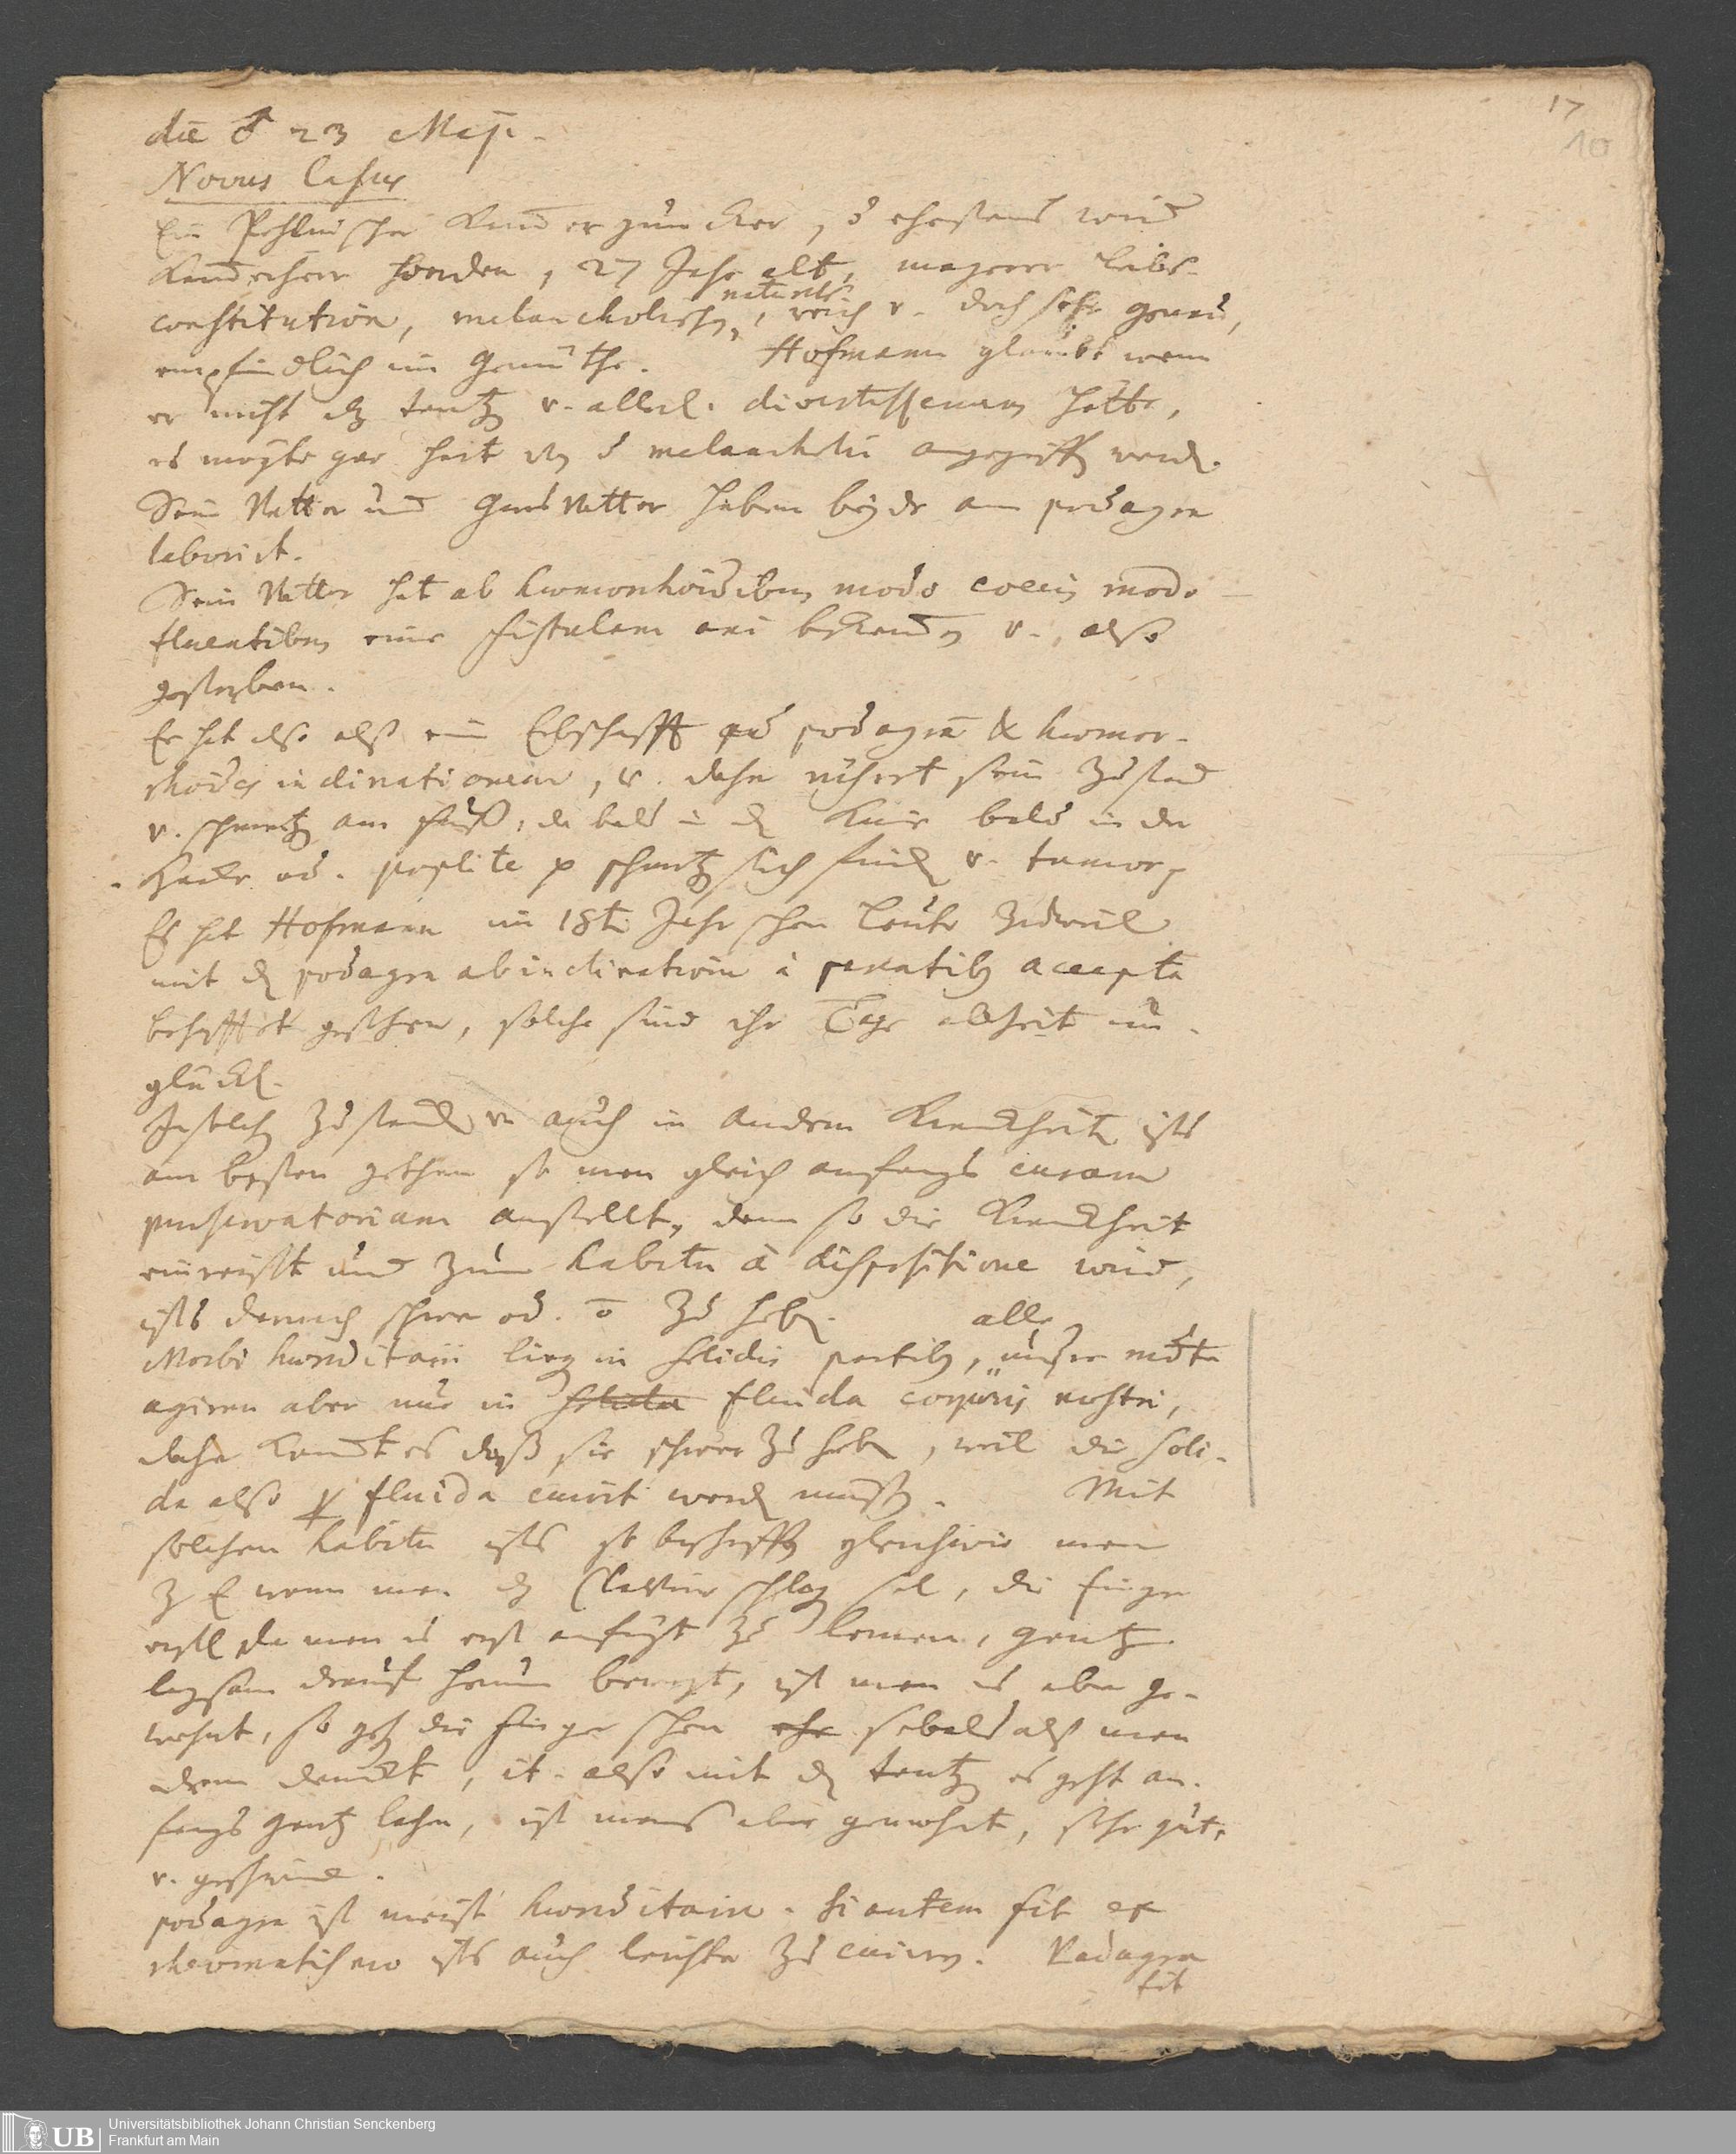 17
10
die ♂ 23 Maji.
Novus Casus
Ein Pohlnischer Cammerjuncker, d ehestens wird
Cammerherr werden, 27 Jahr alt, magerer Leibs-
constitution, melancholisch, naturels, reich v. doch sehr
empfindlich im Gemüthe. Hofmann glaubt wenn
er nicht dz tantz v. allerl. divertissemens hätte,
es mögte gar hart von d melancholie angegriff werd.
Sein Vatter und GrosVatter haben beyde am podagra
laborirt.
Sein Vatter hat ab haemorrhoidibus modo coecis modo
fluentibus eine fistulam ani bekommen v. also
gestorben.
Er hat also alß ein Erbschafft ad podagra & haemor-
rhoides inclinationem, v. daher rühret sein Zustand
v. schmertz am fuß, da bald in d Knie bald in der
Hacke od. poplite p schmertz sich find v. tumor
Es hat Hofmann im 18t. Jahr schon Leute
mit d podagra ab inclinatione à parentib accepta
behafftet gesehen, solche sind ihr Tage allzeit un-
glückl.
In solch Zustand v. auch in andern Kranckheit ists
am besten gethan so man gleich anfangs curam
praeservatoriam anstellt, denn so die Kranckheit
einreist und zum habitu à dispositione wird,
ists darnach schwer od. o zu heb.
Morbi haereditarii lieg in solidis partib, alle unsere mdta
agiren aber nur in solida fluida corporis nostri,
daher komt es daß sie schwer zu heb, weil die soli-
da also p fluida curirt werd müß. Mit
solchen habitu ists so beschaff gleichwie man
z E wenn man dz Clavier schlag sol, die finger
erstl da man es erst anfägt zu lernen, gantz
lagsam drauf herum bewegt, ist man es aber ge-
wohnt, so geh die finger schon ehe sobald alß man
dran denckt, it. also mit d tantz es geht an-
fangs gantz lahm, ist mans aber gewohnt, sehr gut,
v. geschwind.
podagra ist meist haereditair. Si autem fit ex
rheumatismo ists auch leichter zu curiren. Podagra
fit
Universitätsbibliothek Johann Christian Senckenberg
Frankfurt am Main
UB